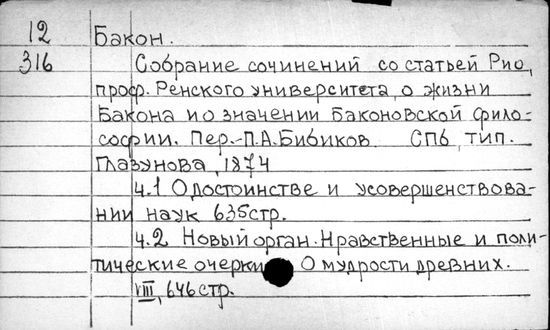 12 Бакон.
316 Собрание сочинений со статьей Рио,
проф. Ренского университета, о жизни
Бакона и о значении Баконовской фило-
софии. Пер.-П.А.Бибиков СПб, тип.
Глазунова, 1874
ч.1 О достоинстве и усовершенствова-
нии наук 635стр.
ч.2 Новый орган. Нравственные и поли-
тические очерки О мудрости древних.
VIII, 646стр.